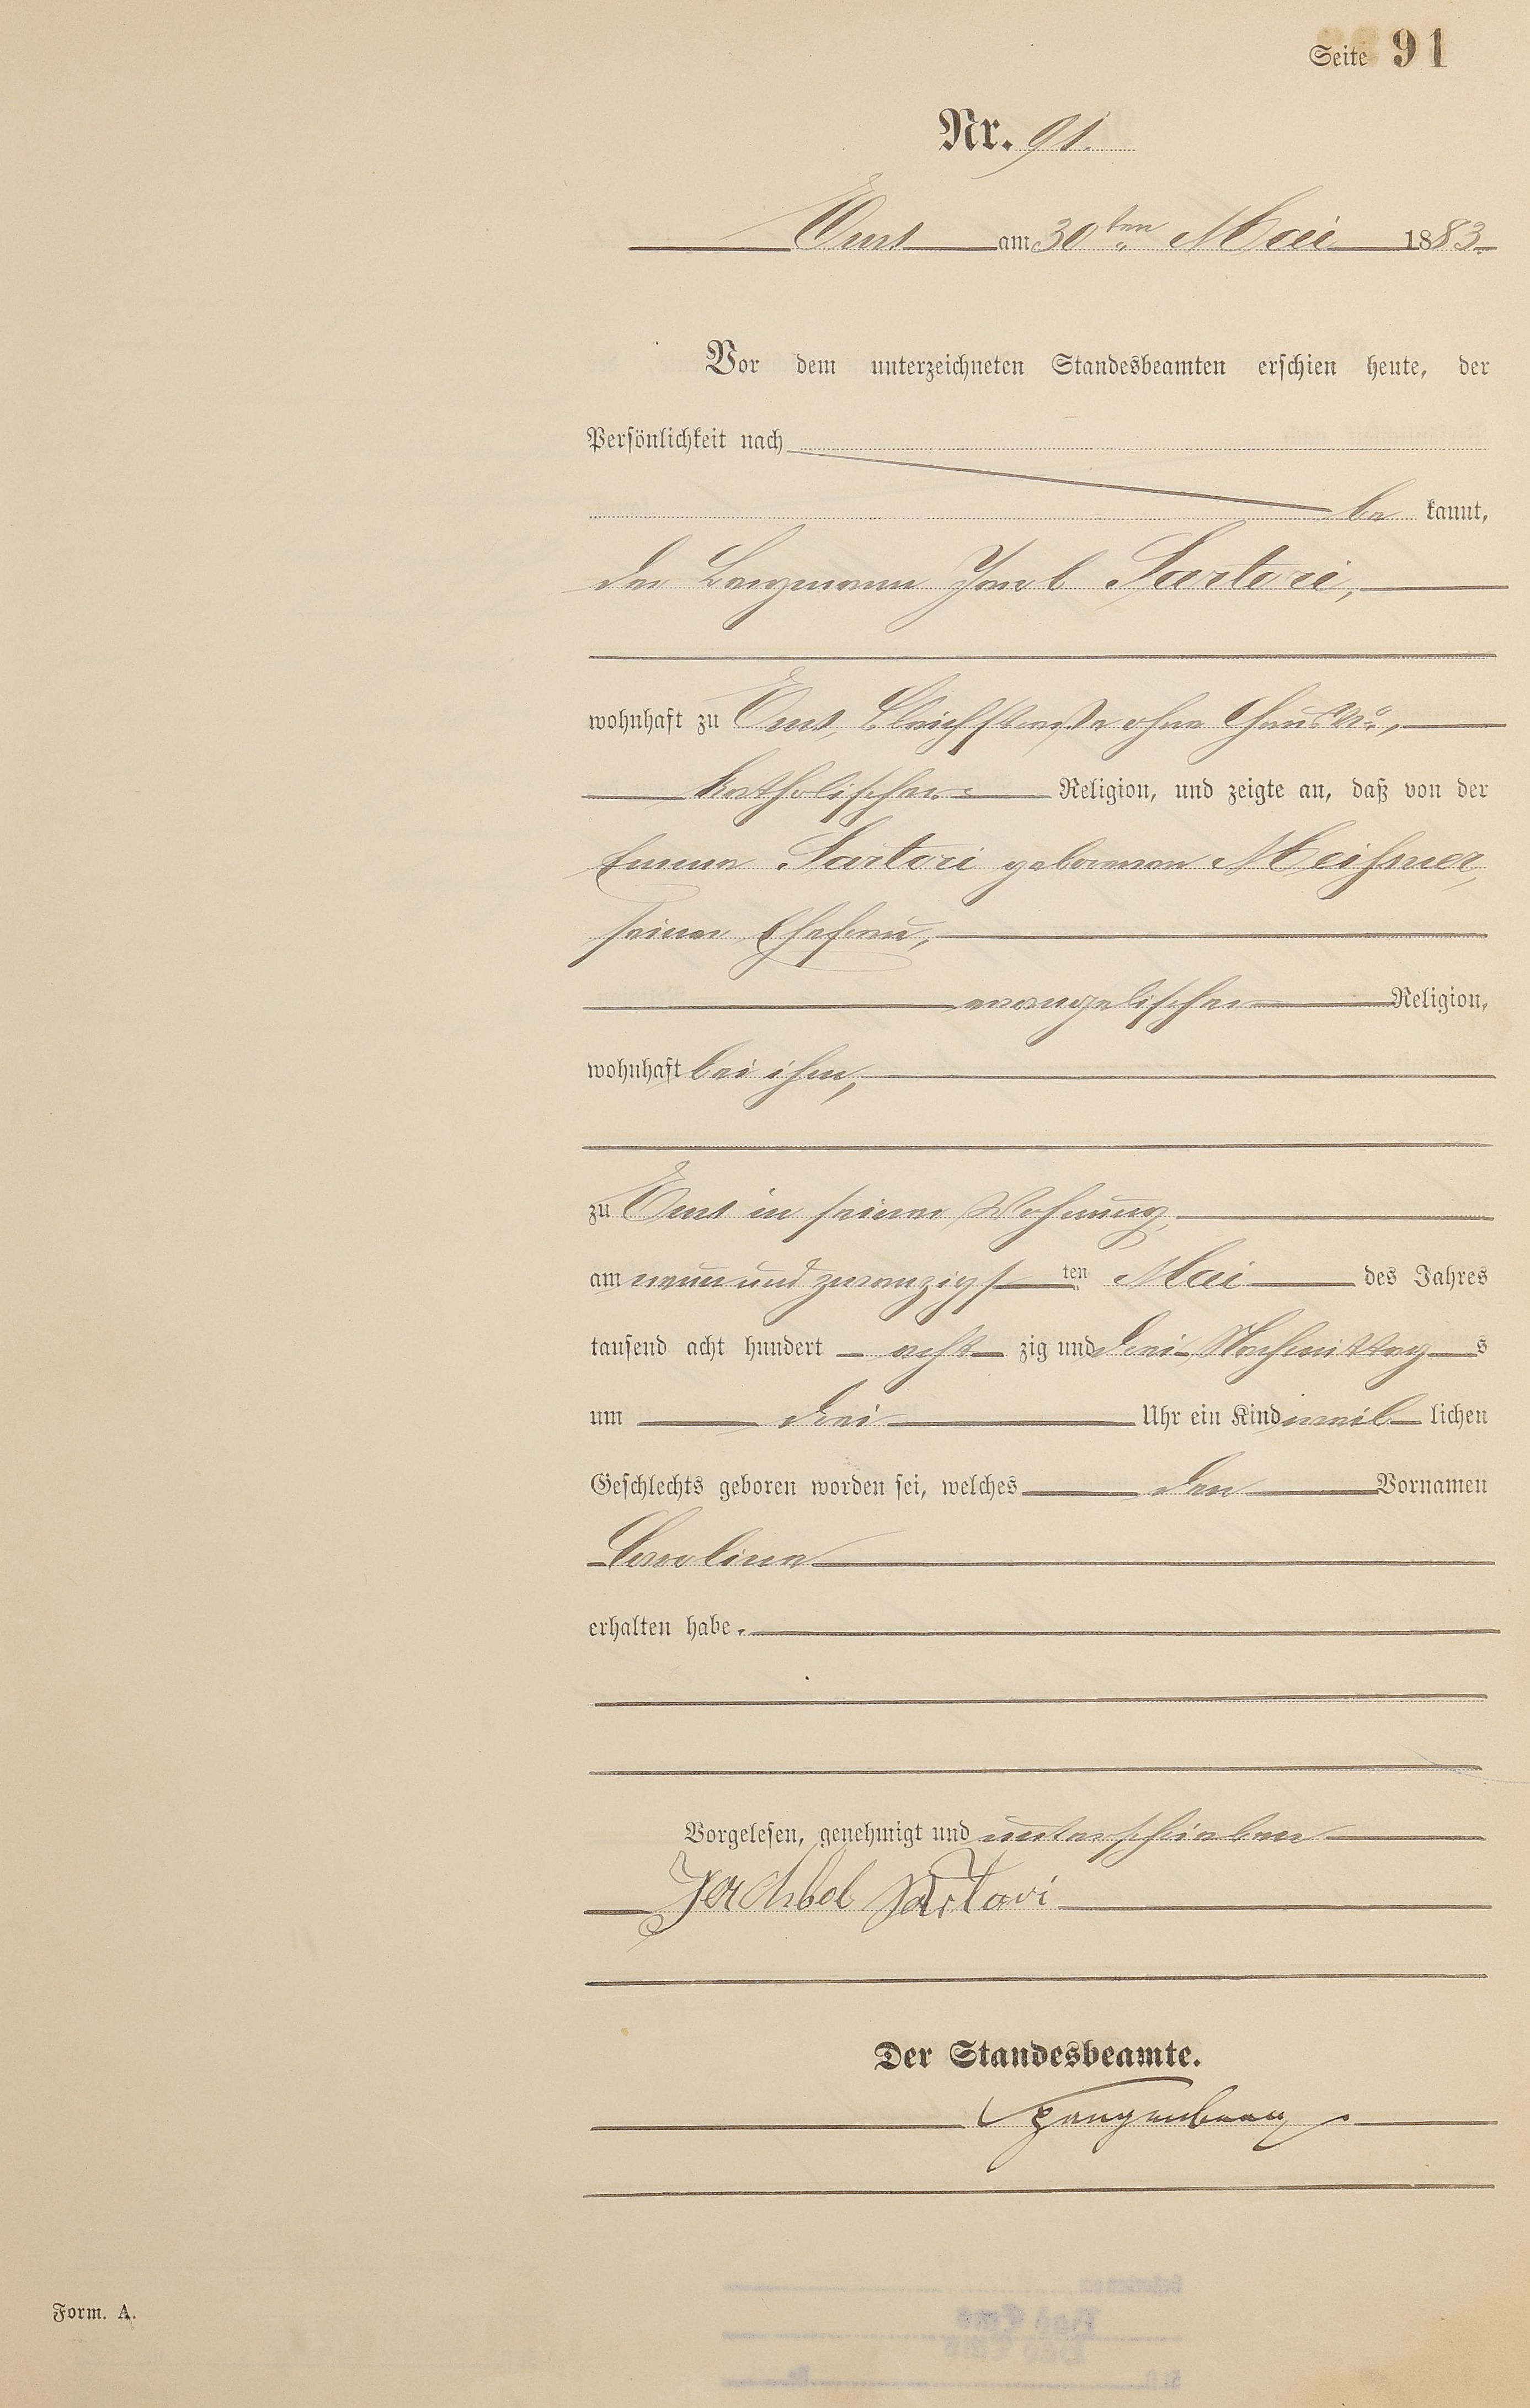 Seite 91
Nr. 91.
Ems am 30ten Mai 1883.
Vor dem unterzeichneten Standesbeamten erschien heute, der
Persönlichkeit nach
be kannt,
der Bergmann Jacob Sartori,
wohnhaft zu Ems, Bleichstraße ohne Haus No.,
katholischer Religion, und zeigte an, daß von der
Emma Sartori geborenen Meißner,
seiner Ehefrau,
evangelischer Religion,
wohnhaft bei ihm,
zu Ems in seiner Wohnung,
am neun und zwanzigsten Mai des Jahres
tausend acht hundert acht zig und drei Nachmittags
um drei Uhr ein Kind weib lichen
Geschlechts geboren worden sei, welches den Vornamen
Carolina
erhalten habe.
Vorgelesen, genehmigt und unterschrieben
Sartori
Der Standesbeamte.
Form. A.